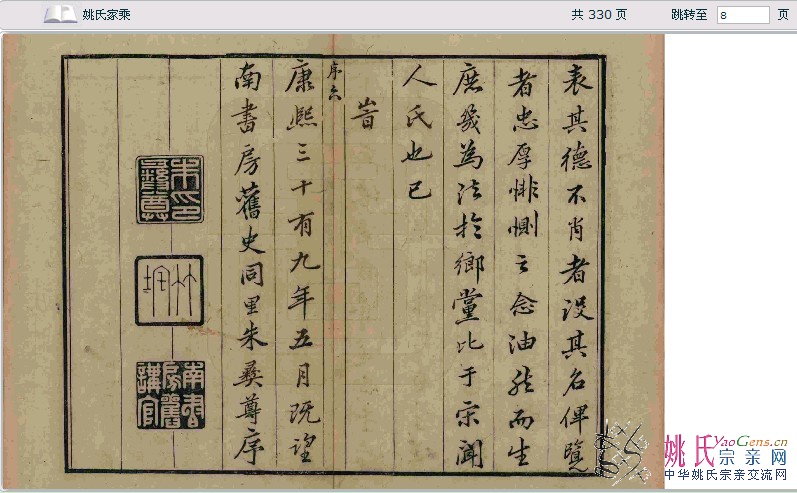 姚氏家乘
共 330 页
跳转至 8 页
表其德不肖者没其名俾覽
者忠厚悱惻之念油然而生
庶幾為法於鄉黨比于宗聞
人氏也已
旹
序六
康熙三十有九年五月既望
南書房舊史同里朱彝尊序
朱彝尊印
竹垞
南書房舊講官
姚氏 YaoGens.cn
宗亲网
中华姚氏宗亲交流网